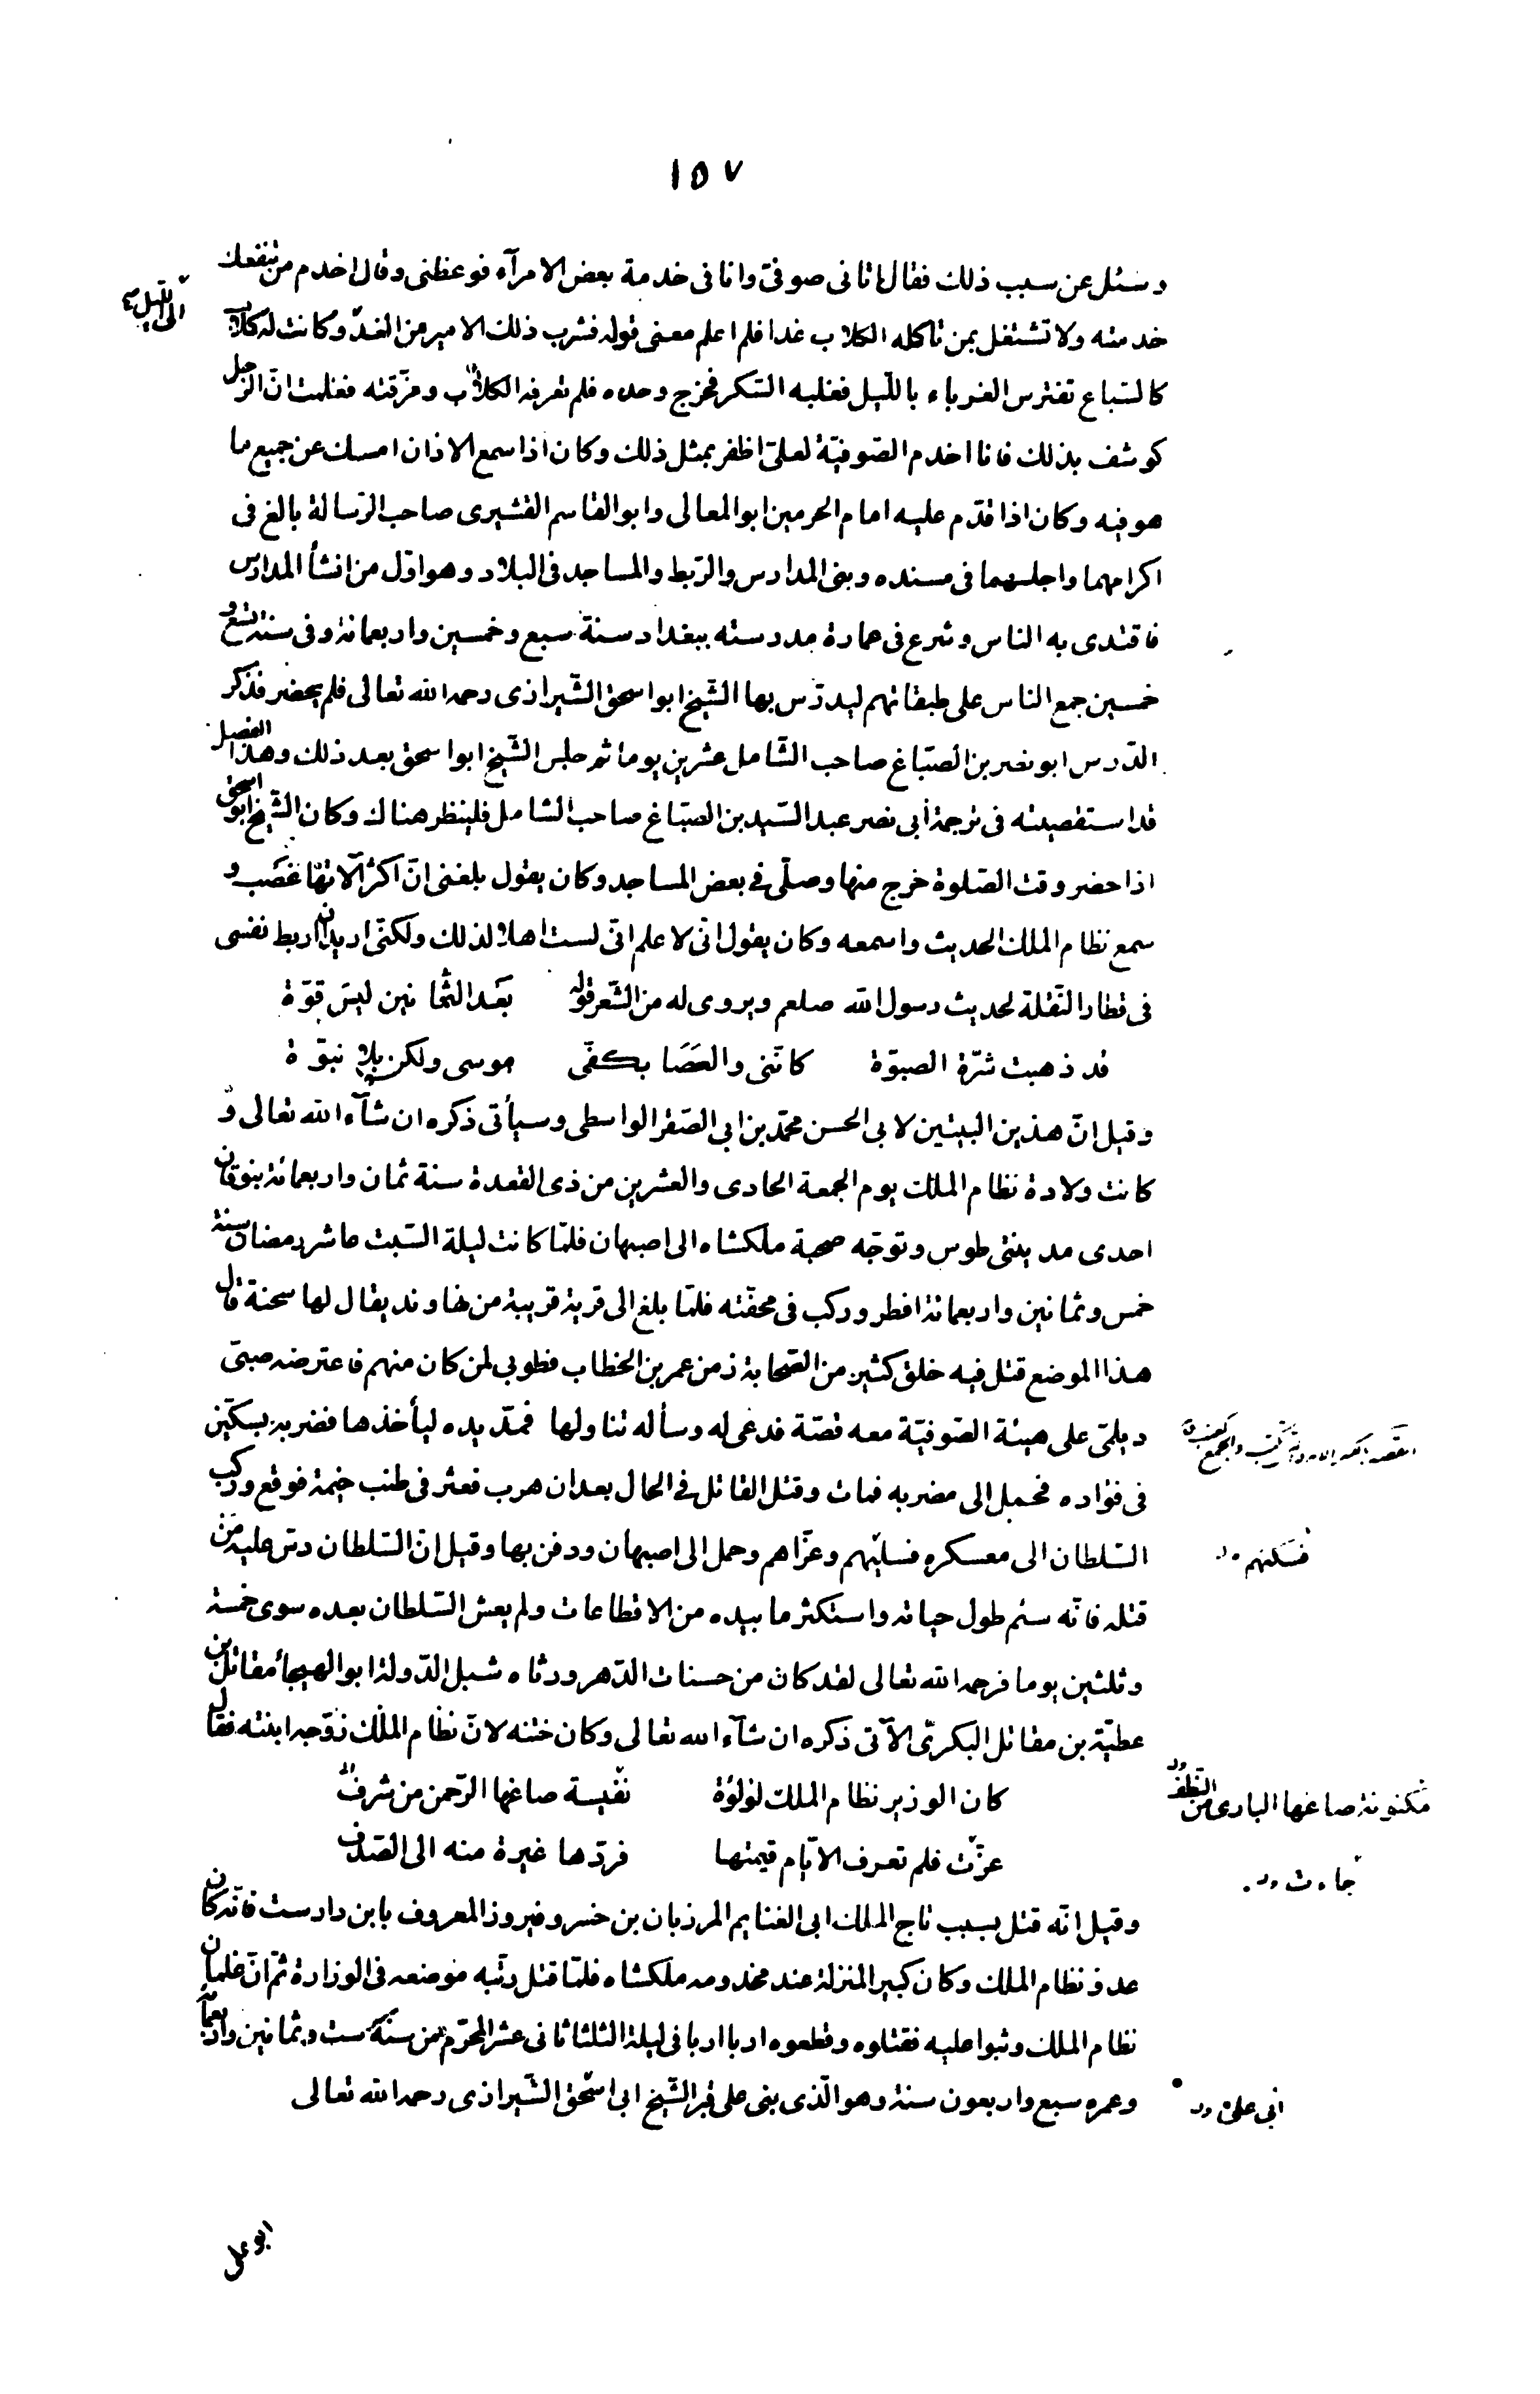 ١٥٧
وسئل عن سبب ذلك فقال اتانى صوفىّ وانا فى خدمة بعض الامرآء فوعظنى وقال اخدم من تنفعك
الى الليل
خدمته ولا تشتغل بمن تاكله الكلاب غدا فلم اعلم معنى قوله فشرب ذلك الامير من الغد وكانت له كلاب
كالسّباع تفترس الغرباء بالليل فغلبه السّكر فخرج وحده فلم تعرفه الكلاب ومزّقته فعلمت انّ الرّجل
كوشف بذلك فانا اخدم الصّوفيّة لعلىّ اظفر بمثل ذلك وكان اذا سمع الاذان امسك عن جميع ما
هو فيه وكان اذا قدم عليه امام الحرمين ابو المعالى وابو القاسم القشيرى صاحب الرّسالة بالغ فى
اكرامهما واجلسهما فى مسنده وبنى المدارس والرّبط والمساجد فى البلاد وهو اوّل من انشأ المدارس
فاقتدى به الناس وشرع فى عمارة مدرسته ببغداد سنة سبع وخمسين واربعمائة وفى سنة تسع و
خمسين جمع الناس على طبقاتهم ليدرّس بها الشّيخ ابو اسحق الشّيرازى رحمه الله تعالى فلم يحضر فذكر
الدّرس ابو نصر بن الصبّاغ صاحب الشّامل عشرين يوما ثم جلس الشّيخ ابو اسحق بعد ذلك وهذا الفصل
قد استقصيته فى ترجمة أبى نصر عبد السّيد بن الصبّاغ صاحب الشامل فلينظر هناك وكان الشّيخ ابو اسحق
اذا حضر وقت الصّلوة خرج منها وصلّى فى بعض المساجد وكان يقول بلغنى انّ اكثر آلاتها غصب و
سمع نظام الملك الحديث واسمعه وكان يقول انى لاعلم انّى لست اهلا لذلك ولكنّى اريد ان اربط نفسى
فى قطار النّقلة لحديث رسول الله صلعم ويروى له من الشّعر قوله بعد الثمانين ليس قوّة
قد ذهبت شرّة الصبوّة كانّنى والعصا بكفّى موسى ولكن بلا نبوّة
وقيل انّ هذين البيتين لابى الحسن محمّد بن ابى الصّقر الواسطى وسيأتى ذكره ان شآء الله تعالى و
كانت ولادة نظام الملك يوم الجمعة الحادى والعشرين من ذى القعدة سنة ثمان واربعمائة بنوقان
احدى مدينتى طوس وتوجّه صحبة ملكشاه الى اصبهان فلمّا كانت ليلة السّبت عاشر رمضان سنة
خمس وثمانين واربعمائة افطر وركب فى محفّته فلمّا بلغ الى قرية قريبة من نهاوند يقال لها سحنة قال
هذا الموضع قتل فيه خلق كثير من الصّحابة زمن عمر بن الخطاب فطوبى لمن كان منهم فاعترضه صبىّ
ديلمىّ على هيئة الصّوفيّة معه قصّة فدعى له وسأله تناولها فمدّ يده ليأخذها فضربه بسكّين
فى فؤاده فحمل الى مضربه فمات وقتل القاتل فى الحال بعد ان هرب فعثر فى طنب خيمة فوقع وركب
السّلطان الى معسكره فسلّيهم وعزّاهم وحمل الى اصبهان ودفن بها وقيل انّ السّلطان دسّ عليه من
فسكنهم
قتله فانّه سئم طول حياته واستكثر ما بيده من الاقطاعات ولم يعش السّلطان بعده سوى خمسة
وثلثين يوما فرحمه الله تعالى لقد كان من حسنات الدّهر ورثاه شبل الدّولة ابو الهيجأ مقاتل بن
عطيّة بن مقاتل البكرىّ الآتى ذكره ان شآء الله تعالى وكان ختنه لانّ نظام الملك زوّجه ابنته فقال
كان الوزير نظام الملك لؤلؤة نفيسة صاغها الرّحمن من شرف
مكنونة صاغها البارى من النطف
عزّت فلم تعرف الايّام قيمتها فردّها غيرة منه الى الصّدف
جاءت
وقيل انّه قتل بسبب تاج الملك ابى الغنايم المرزبان بن خسرو فيروز المعروف بابن دارست فانّه كان
عدوّ نظام الملك وكان كبير المنزلة عند مخدومه ملكشاه فلمّا قتل رتّبه موضعه فى الوزارة ثمّ انّ غلمان
نظام الملك وثبوا عليه فقتلوه وقطعوه اربا اربا فى ليلة الثلثا ثانى عشر المحرّم من سنة ست وثمانين واربعمائة
وعمره سبع واربعون سنة وهو الّذى بنى على قبر الشّيخ ابى اسحق الشّيرازى رحمه الله تعالى
ابى على
ابو على